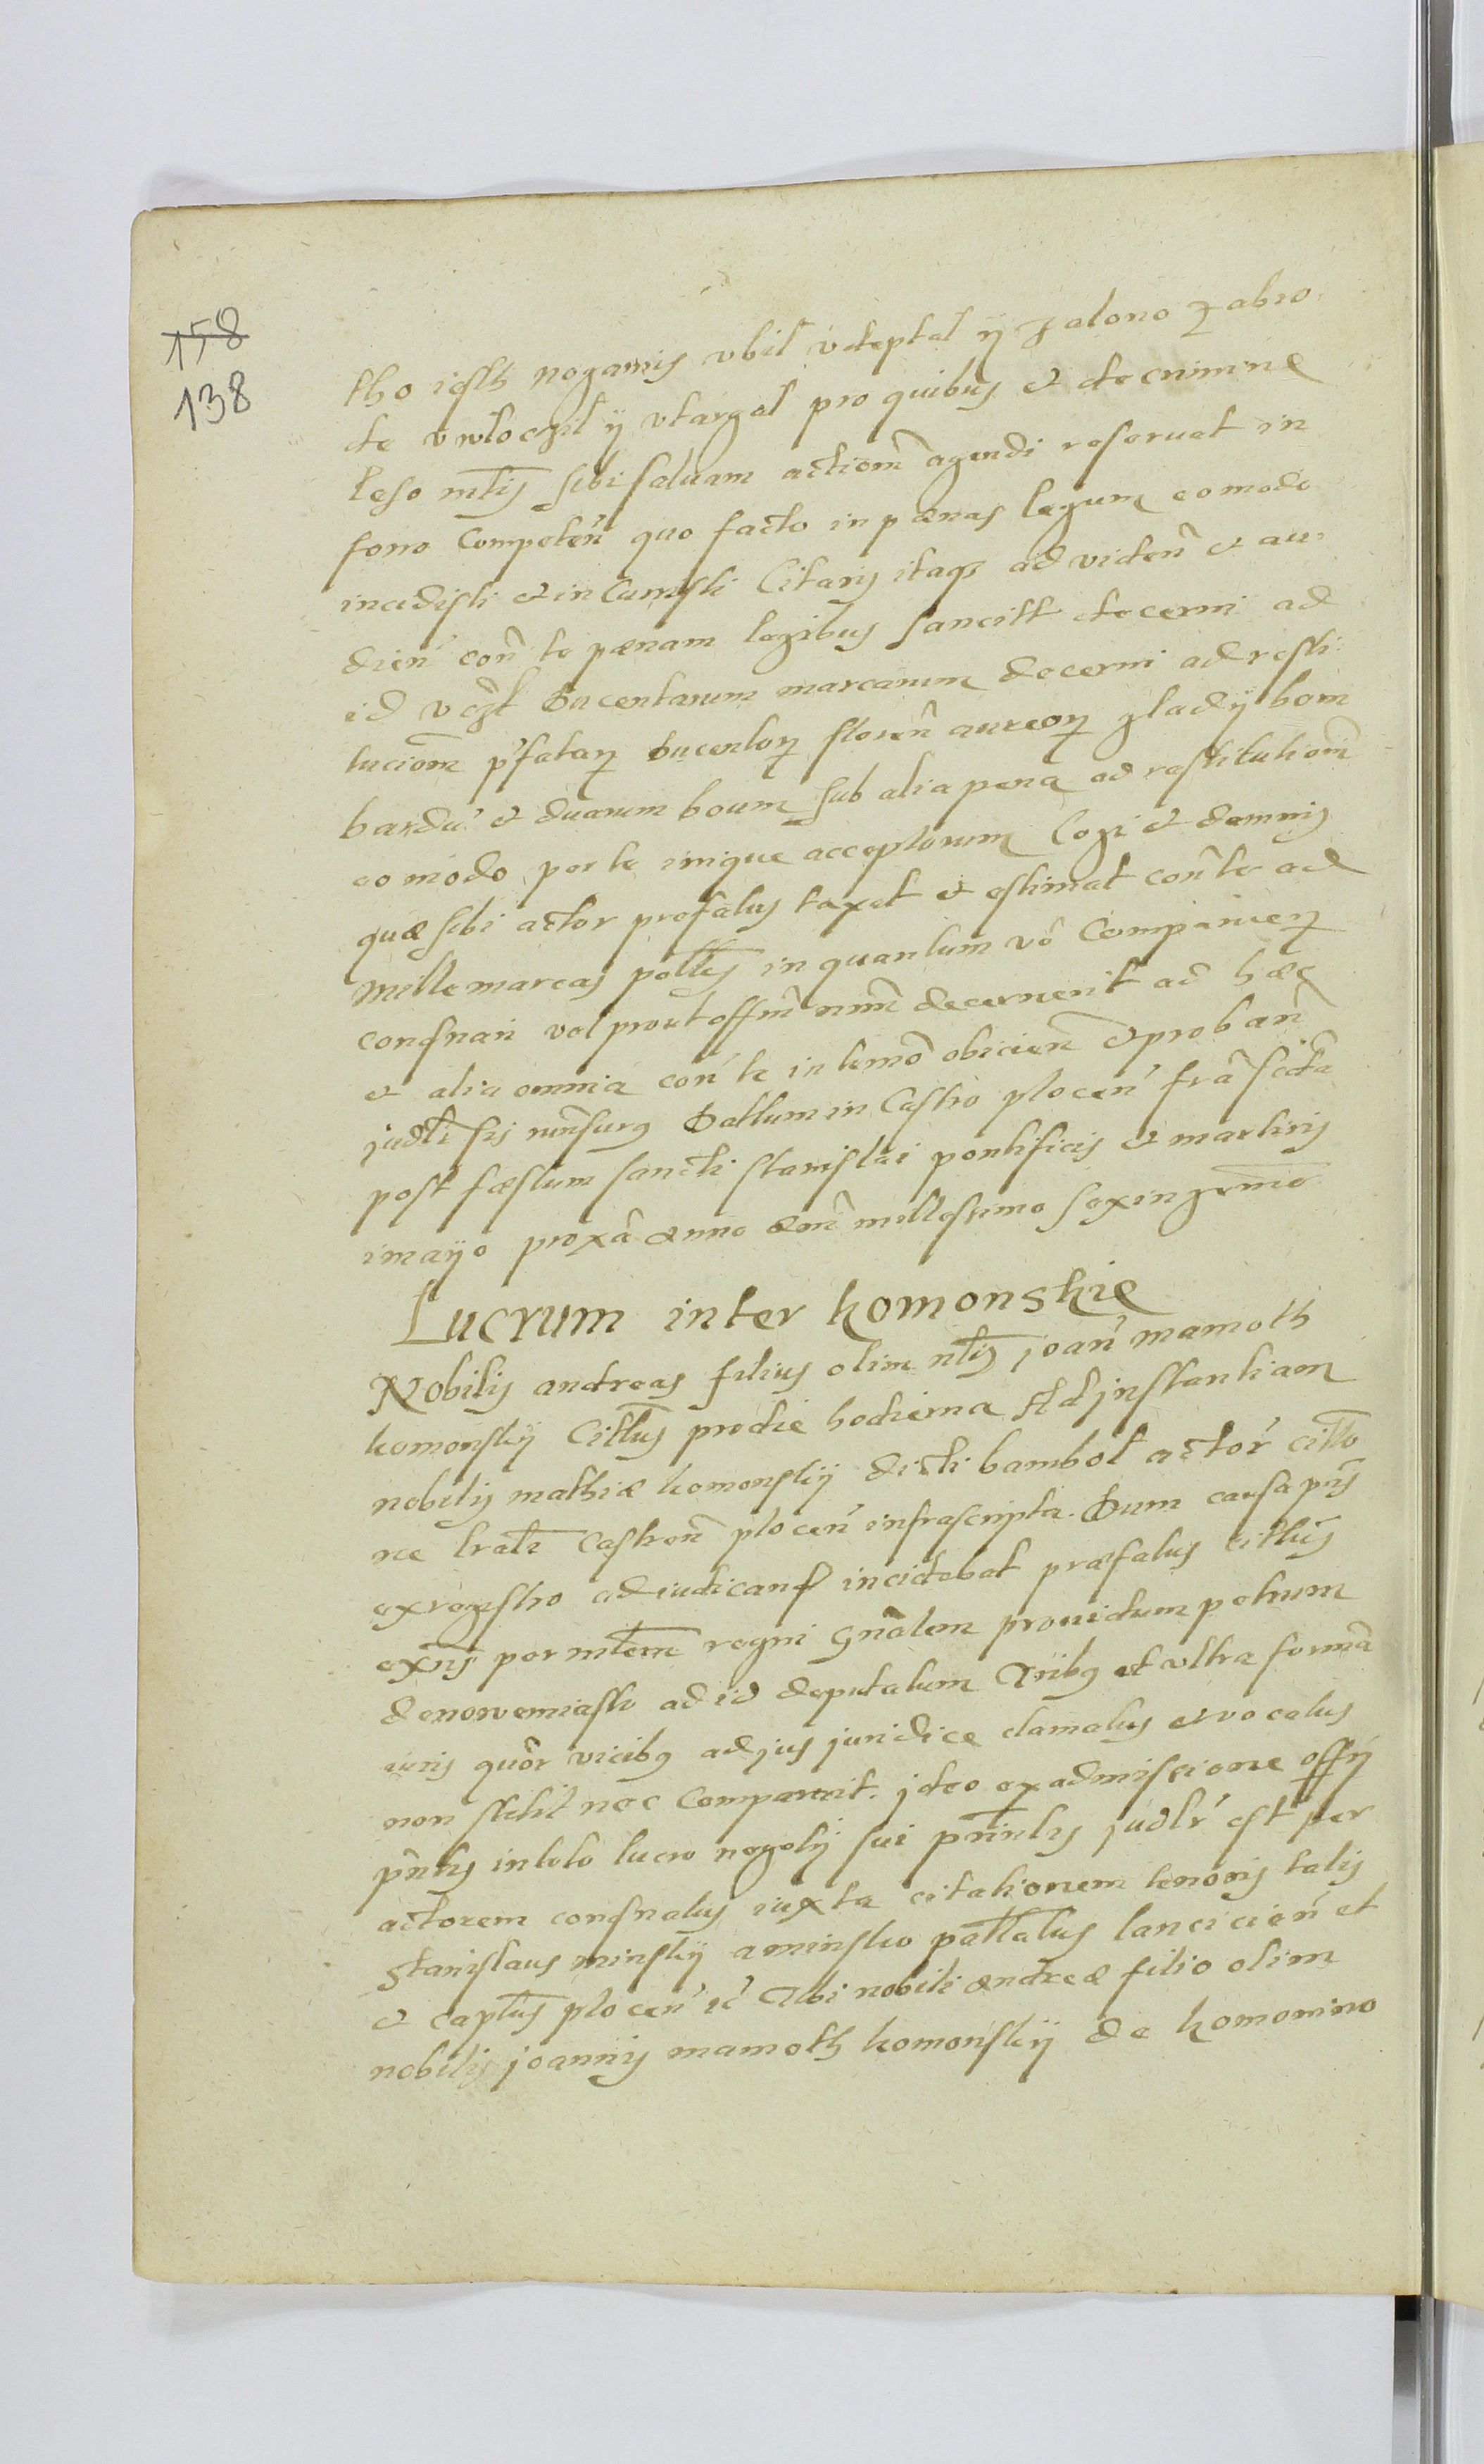 158
138
tho iesth nogamis vbil vdeptal ÿ zalono zabro
te vwloczil ÿ vtargal pro quibus et de crimine
leso mtis sibi saluam actiom agendi reseruat in
foro Competen quo facto in pœnas legum eo modo
incidisti et incuristi Citaris itaqз ad viden et au
dien con te pœnam legibus sancitt decerni ad
id vczt Ducentarum marcarum decerni ad resti
tuciom pfatarз ducentorз floren aureorз gladÿ bom
bardu et duarum boum sub alia pena ad restitutiom
eo modo per te inique acceptorum Cogi et damnis
quæ sibi actor prefatus taxat et estimat con te ad
mille marcas pollis in quantum vo Comparuerз
consnari vel prout offm nrm decernerit ad hæc
et alia omnia con te in termo obicien et proban
judtr sis rumsurus Dattum in Castro plocen fra scda
post fæstum sancti stanislai pontificis et martiris
imaÿo proxa anno dom millesimo sexingrmo
Lucrum inter komonskie
Nobilis andreas filius olim ntis joan mamoth
komonskÿ Cittus pro die hodierna Ad jnstantiam
nobilis mathiæ komonskÿ dicti bambol actor citto
ne lratr Castren plocen infrascripta. Dum causa pns
ex regestro ad iudicand incidebat præfatus cittus
exns per mtem regni Gnalem prouidum petrum
de nowemiasto ad id deputatum Tribus et vltra forma
iuris quor vicibus ad jus juridice clamatus et vocatus
non stetit nec Comparuit. jdeo ex admissione offÿ
pntis in toto lucro negotÿ sui prntis judtr est per
actorem consnatus iuxta citationem tenoris talis
Stanislaus minskÿ a minsko pallatus lancicien et
et captus plocen ic Tibi nobili andreæ filio olim
nobilis joannis mamoth komonskÿ de komonino